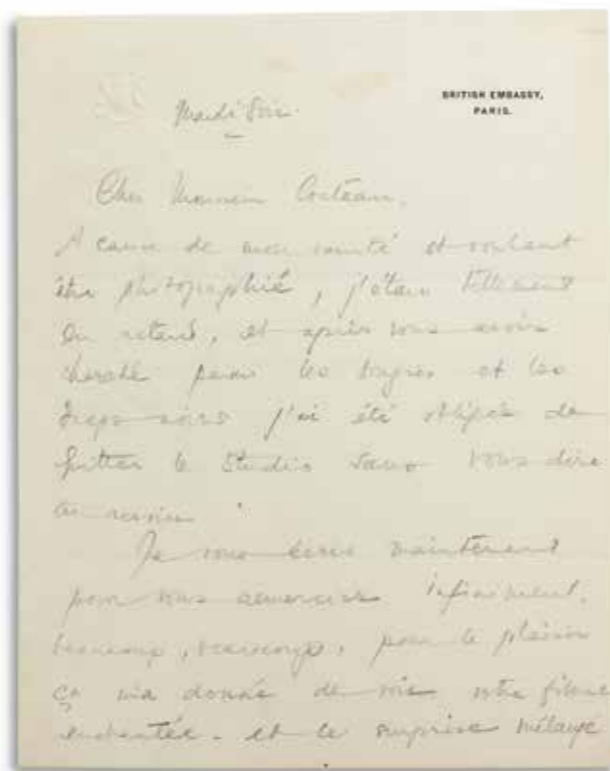 BRITISH EMBASSY,
PARIS.
Mardi Soir.
Cher Monsieur Cocteau,
A cause de mon vanité et voulant
être photographié, j'étais tellement
en retard, et après vous avoir
cherché parmi les bougies et les
j'ai été obligée de
quitter le Studio sans vous dire
au revoir
Je vous écris maintenant
pour vous remercier infiniment,
beaucoup, beaucoup, pour le plaisir
ça m'a donné de voir votre filme
enchantée. et le surprise mélangé